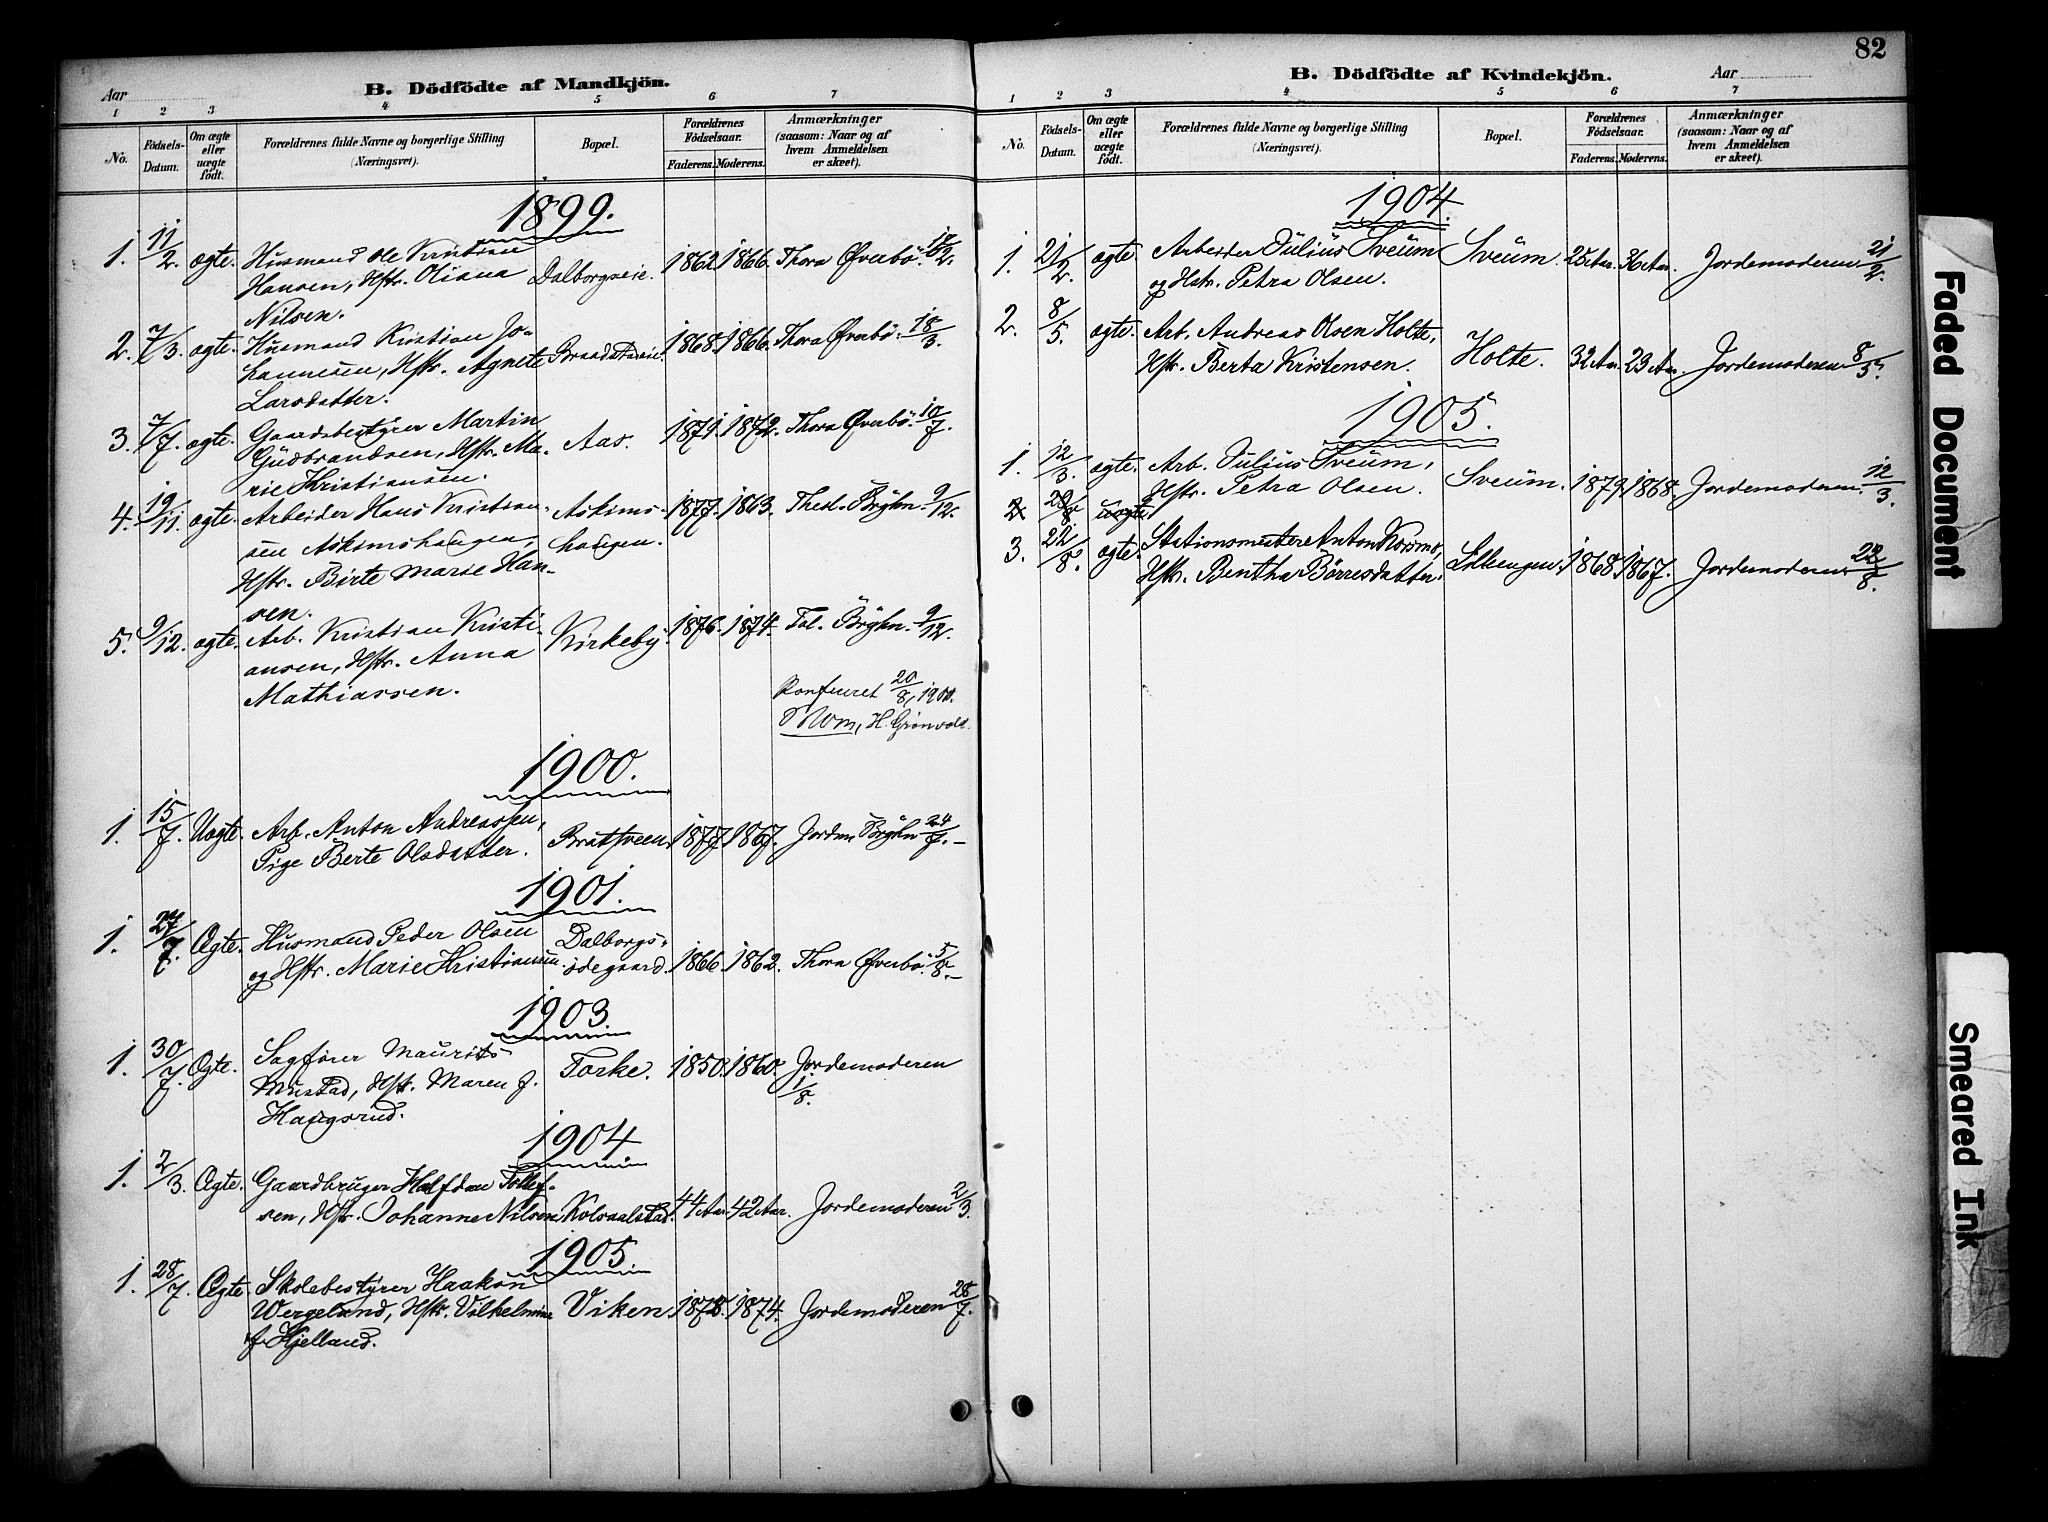 82
B. Dödfödte af Mandkjön.
Aar
1 2 3 4 5 6 7
No.
Födsels-Datum.
Om ægte eller uægte födt.
Forældrenes fulde Navne og borgerlige Stilling (Næringsvei).
Bopæl.
Forældrenes Födselsaar.
Faderens. Moderens.
Anmærkninger (saasom: Naar og af hvem Anmeldelsen er skeet).
1899.
1. 11/2. ægte. Husmand Ole Kristian Dalborgseie. 1862. 1866. Thora Øverbö.
Hansen, Hstr. Oliana
Nilsen.
2. 7/3. ægte. Husmand Kristian Jo- 1868. 1866. Thora Øverbö. 18/3.
hannesen, Hstr. Agnete
Larsdatter.
3. 7/7. ægte. Gaardsbestyrer Martin Aas. 1871. 1872. Thora Øverbö. 10/7.
Gudbrandsen, Hstr. Ma-
rie Kristiansen.
4. 19/11. ægte. Arbeider Hans Kristian- Askims- 1877. 1863. 9/12.
sen Askimshaugen, haugen.
Hstr. Birte Marie Han-
sen.
5. 9/12. ægte. Arb. Kristian Kristi- Kirkeby. 1876. 1874. 9/12.
ansen, Hstr. Anna
Mathiassen.
Konfereret 20/8, 1900.
H. Grönvold.
1900.
1. 15/7. Uægte. Arb. Anton Andreassen, Bratsveen. 1877. 1867. 24/7.
Pige Berte Olsdatter.
1901.
1. 27/7. Ægte. Husmand Peder Olsen Dalborgs-
og Hstr. Marie Kristiansen. ödegaard. 1866. 1862. Thora Øverbö. 5/8.
1903.
1. 30/7. Ægte. Sagförer Maurits Torke. 1850. 1860. Jordemoderen
Mustad, Hstr. Maren f. 1/8.
Haugsrud.
1904.
1. 2/3. Ægte. Gaardbruger Halfdan Tollef-
sen, Hstr. Johanne Nilsen. Kolsaalstad. 44 Aar. 42 Aar. Jordemoderen 2/3.
1905.
1. 28/7. Ægte. Skolebestyrer Haakon
Wergeland, Hstr. Vilhelmine Viken. 1878. 1874. Jordemoderen 28/7.
f. Hjelland.
B. Dödfödte af Kvindekjön.
Aar
1 2 3 4 5 6 7
No.
Födsels-Datum.
Om ægte eller uægte födt.
Forældrenes fulde Navne og borgerlige Stilling (Næringsvei).
Bopæl.
Forældrenes Födselsaar.
Faderens. Moderens.
Anmærkninger (saasom: Naar og af hvem Anmeldelsen er skeet).
1904.
1. 21/2. ægte. Arbeider Julius Sveum Sveum. 25 Aar. 36 Aar. Jordemoderen 21/2.
og Hstr. Petra Olsen.
2. 8/5. ægte. Arb. Andreas Olsen Holte,
Hstr. Berta Kristensen. Holte. 32 Aar. 23 Aar. Jordemoderen 8/5.
1905.
1. 12/3. ægte. Arb. Julius Sveum, Sveum. 1879. 1868. Jordemoderen. 12/3.
Hstr. Petra Olsen.
2
3. 22/8. ægte. Stationsmester Anton Korsmo,
Hstr. Bentha Börresdatter. Lillengen. 1868. 1867. Jordemoderen 22/8.
Faded Document
Smeared Ink